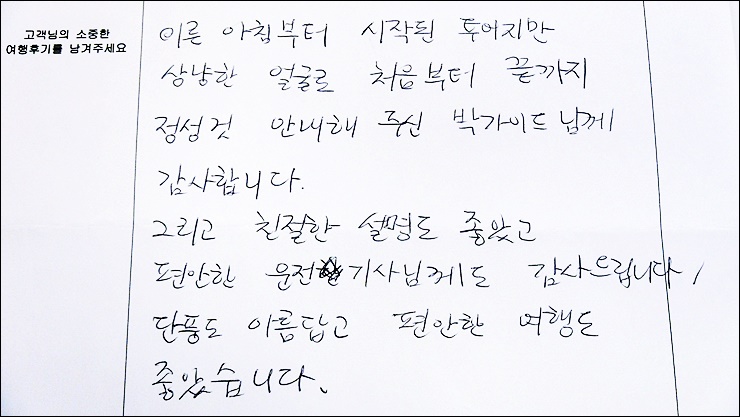 고객님의 소중한
여행후기를 남겨주세요
이른 아침부터 시작된 투어지만
상냥한 얼굴로 처음부터 끝까지
정성껏 안내해 주신 박가이드님께
감사합니다.
그리고 친절한 설명도 좋았고
편안한 운전 기사님께도 감사드립니다,
단풍도 아름답고 편안한 여행도
좋았습니다.